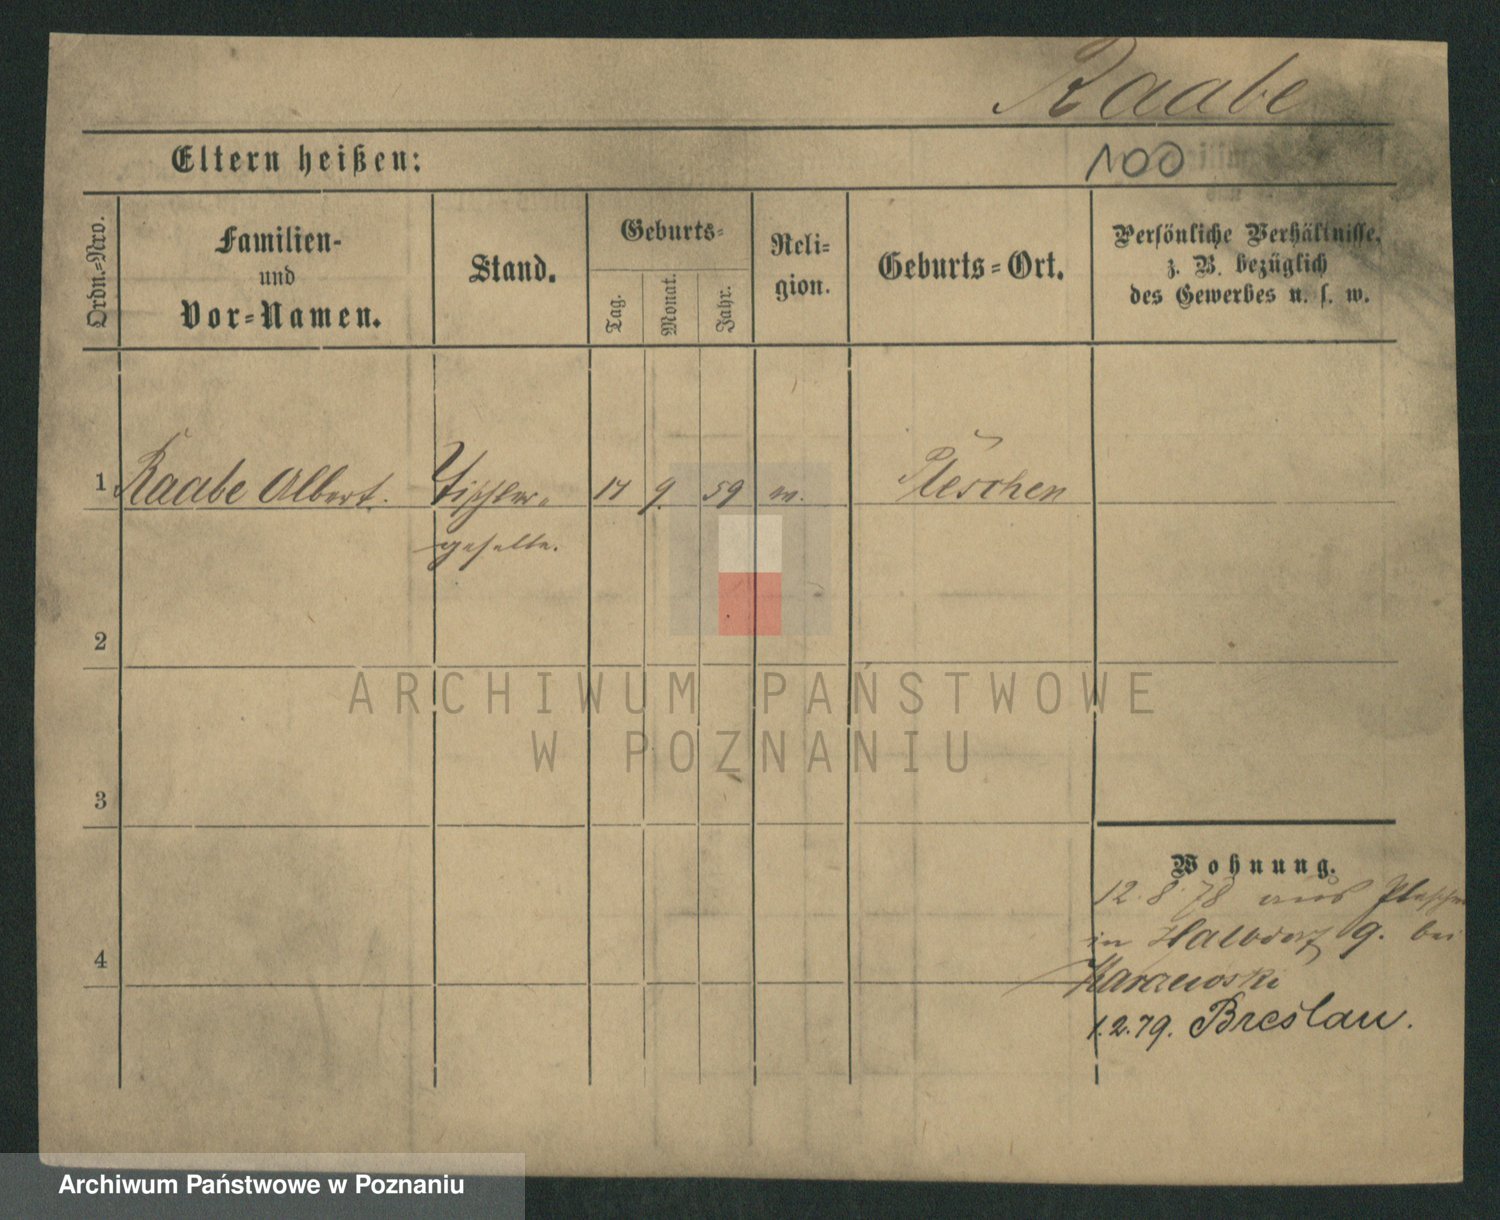 Raabe
Eltern heißen:
100
Ordn.-Nro.
Familien-
und
Vor-Namen.
Stand.
Geburts-
Tag.
Monat.
Jahr.
Reli-
gion.
Geburts-Ort.
Persönliche Verhältnisse,
z. B. bezüglich
des Gewerbes u. s. w.
1 Raabe Albert. Tischler- 17 9. 59 Pleschen
geselle.
2
ARCHIWUM PAŃSTWOWE
W POZNANIU
3
Wohnung.
12.8.78 aus Pleschen
in Halbdorf 9. bei
4
Karczewski
1.2.79. Breslau.
Archiwum Państwowe w Poznaniu